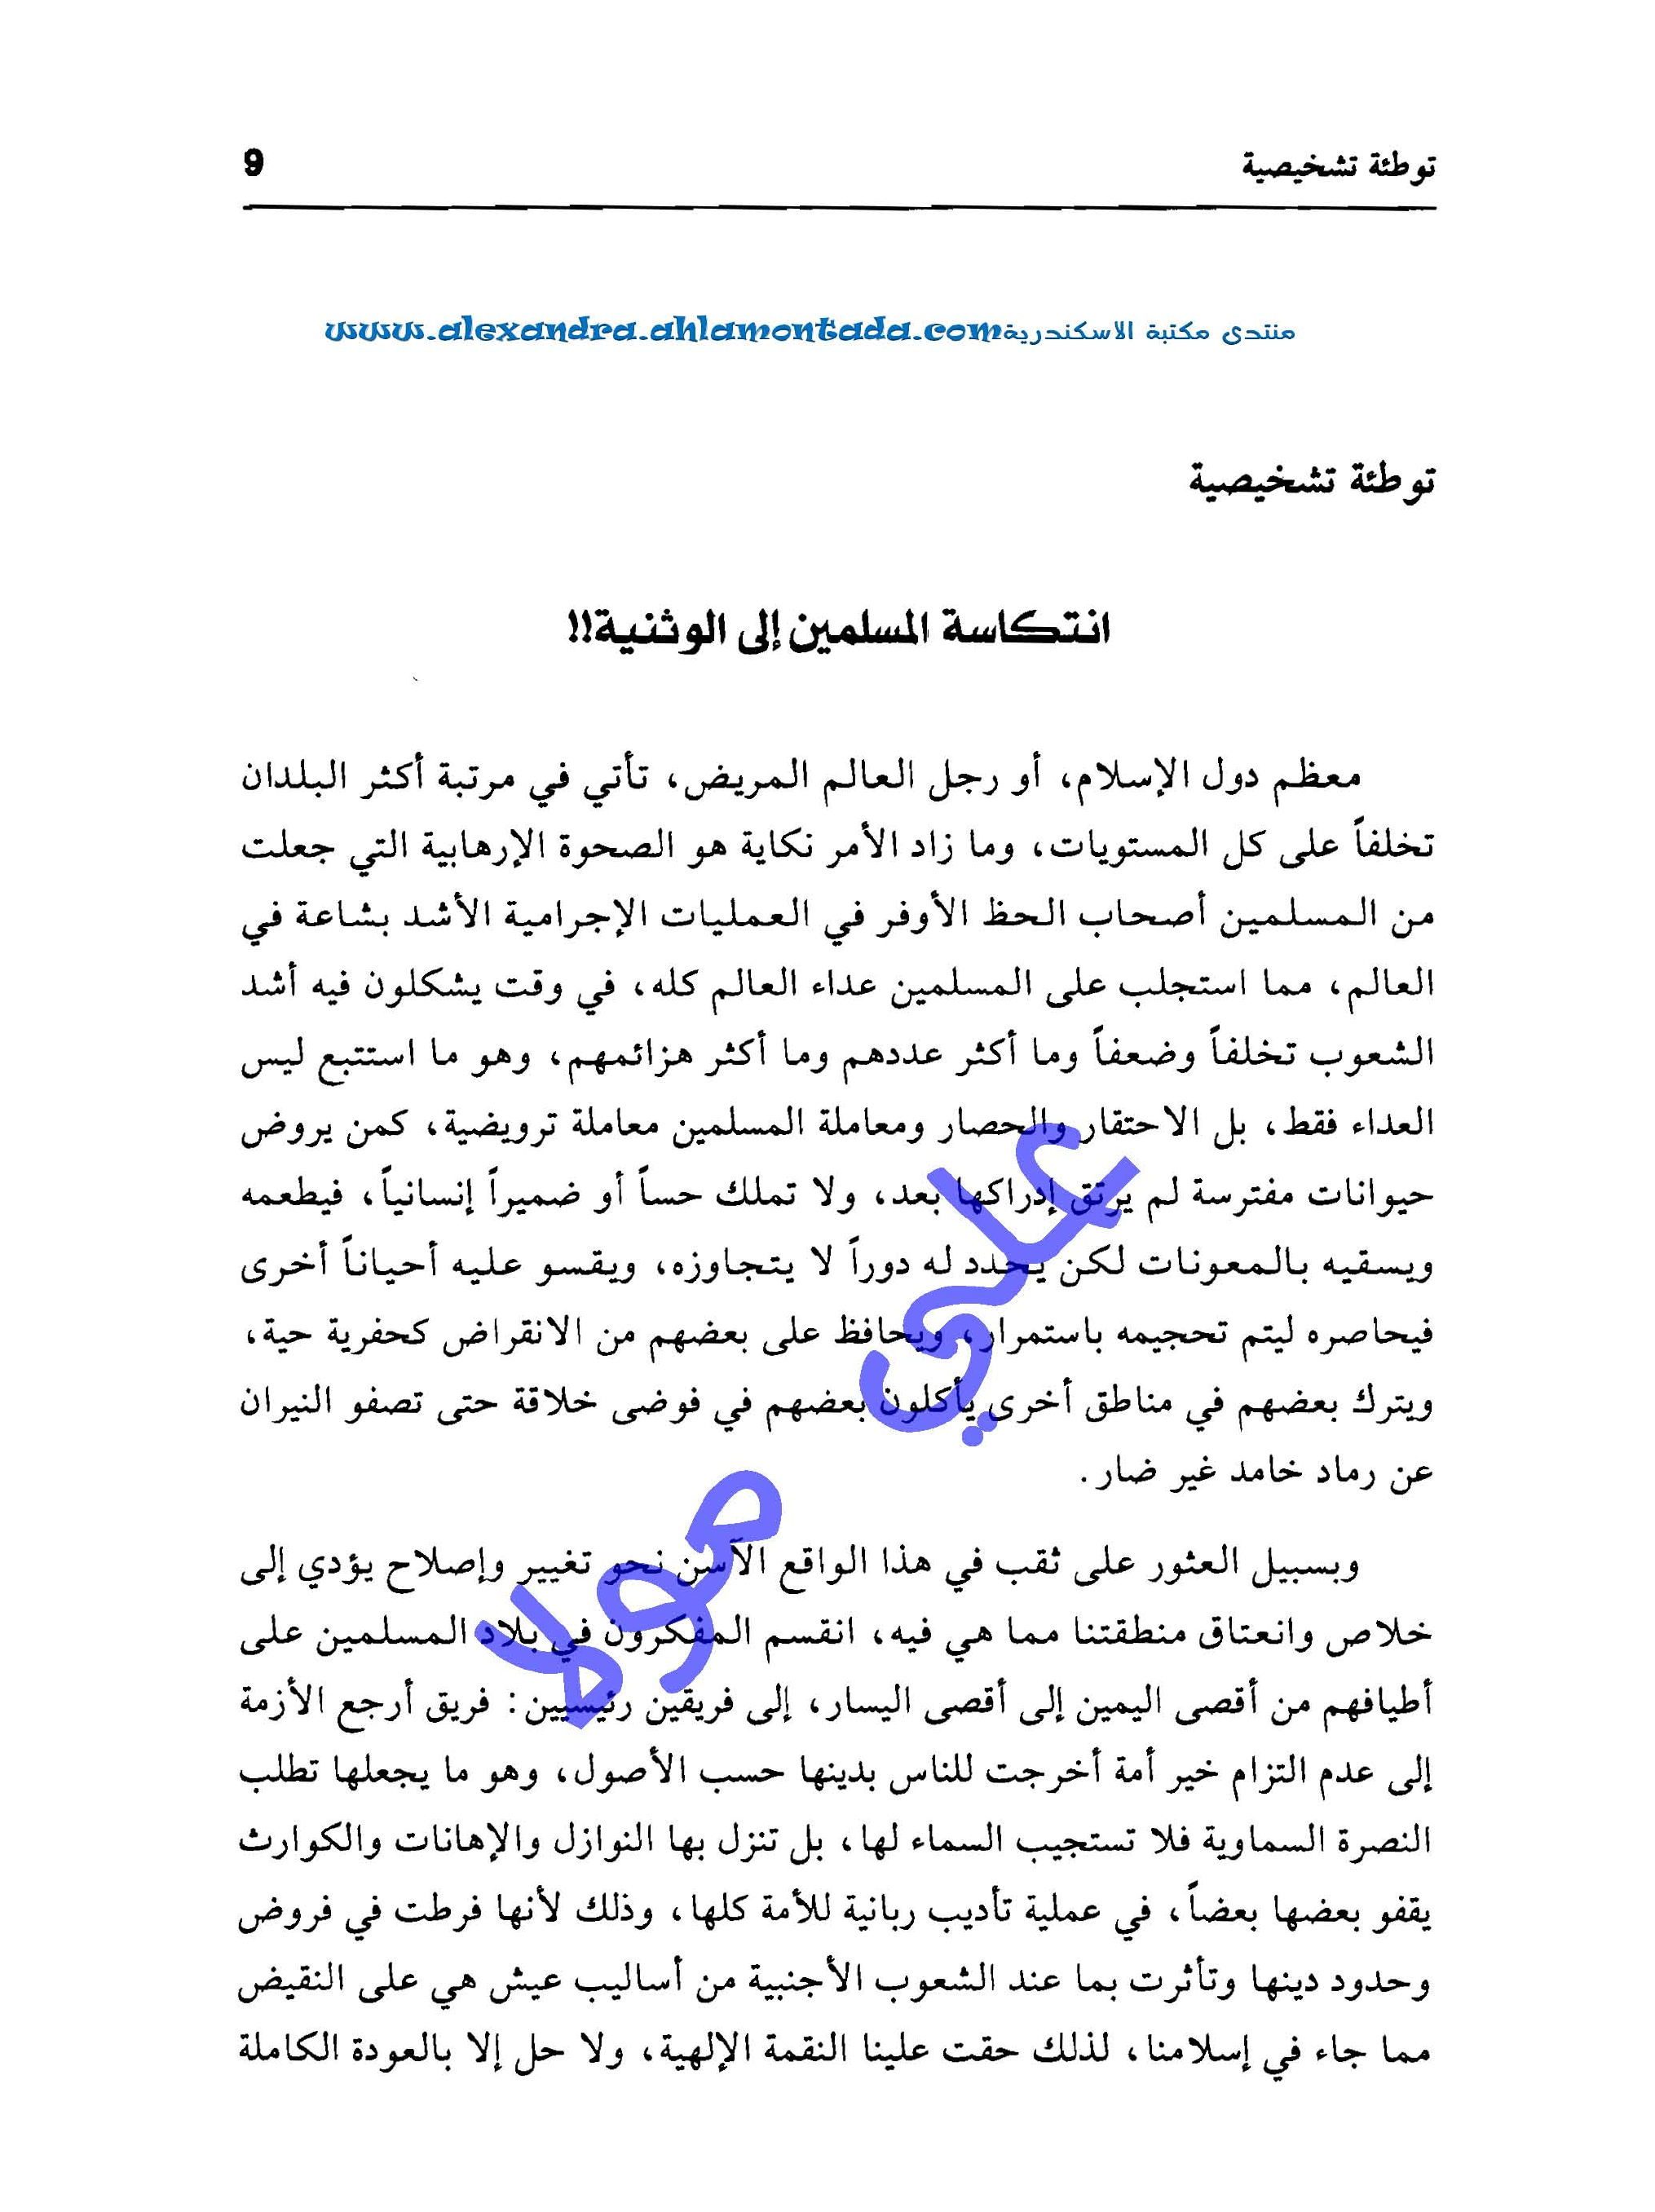 توطئة تشخيصية 9
منتدى مكتبة الاسكندرية www.alexandra.ahlamontada.com
توطئة تشخيصية
انتكاسة المسلمين إلى الوثنية!!
معظم دول الإسلام، أو رجل العالم المريض، تأتي في مرتبة أكثر البلدان
تخلفاً على كل المستويات، وما زاد الأمر نكاية هو الصحوة الإرهابية التي جعلت
من المسلمين أصحاب الحظ الأوفر في العمليات الإجرامية الأشد بشاعة في
العالم، مما استجلب على المسلمين عداء العالم كله، في وقت يشكلون فيه أشد
الشعوب تخلفاً وضعفاً وما أكثر عددهم وما أكثر هزائمهم، وهو ما استتبع ليس
العداء فقط، بل الاحتقار والحصار ومعاملة المسلمين معاملة ترويضية، كمن يروض
حيوانات مفترسة لم يرتق إدراكها بعد، ولا تملك حساً أو ضميراً إنسانياً، فيطعمه
ويسقيه بالمعونات لكن يحدد له دوراً لا يتجاوزه، ويقسو عليه أحياناً أخرى
فيحاصره ليتم تحجيمه باستمرار، ويحافظ على بعضهم من الانقراض كحفرية حية،
ويترك بعضهم في مناطق أخرى يأكلون بعضهم في فوضى خلاقة حتى تصفو النيران
عن رماد خامد غير ضار.
وبسبيل العثور على ثقب في هذا الواقع الآسن نحو تغيير وإصلاح يؤدي إلى
خلاص وانعتاق منطقتنا مما هي فيه، انقسم المفكرون في بلاد المسلمين على
أطيافهم من أقصى اليمين إلى أقصى اليسار، إلى فريقين رئيسيين: فريق أرجع الأزمة
إلى عدم التزام خير أمة أخرجت للناس بدينها حسب الأصول، وهو ما يجعلها تطلب
النصرة السماوية فلا تستجيب السماء لها، بل تنزل بها النوازل والإهانات والكوارث
يقفو بعضها بعضاً، في عملية تأديب ربانية للأمة كلها، وذلك لأنها فرطت في فروض
وحدود دينها وتأثرت بما عند الشعوب الأجنبية من أساليب عيش هي على النقيض
مما جاء في إسلامنا، لذلك حقت علينا النقمة الإلهية، ولا حل إلا بالعودة الكاملة
علي مولا